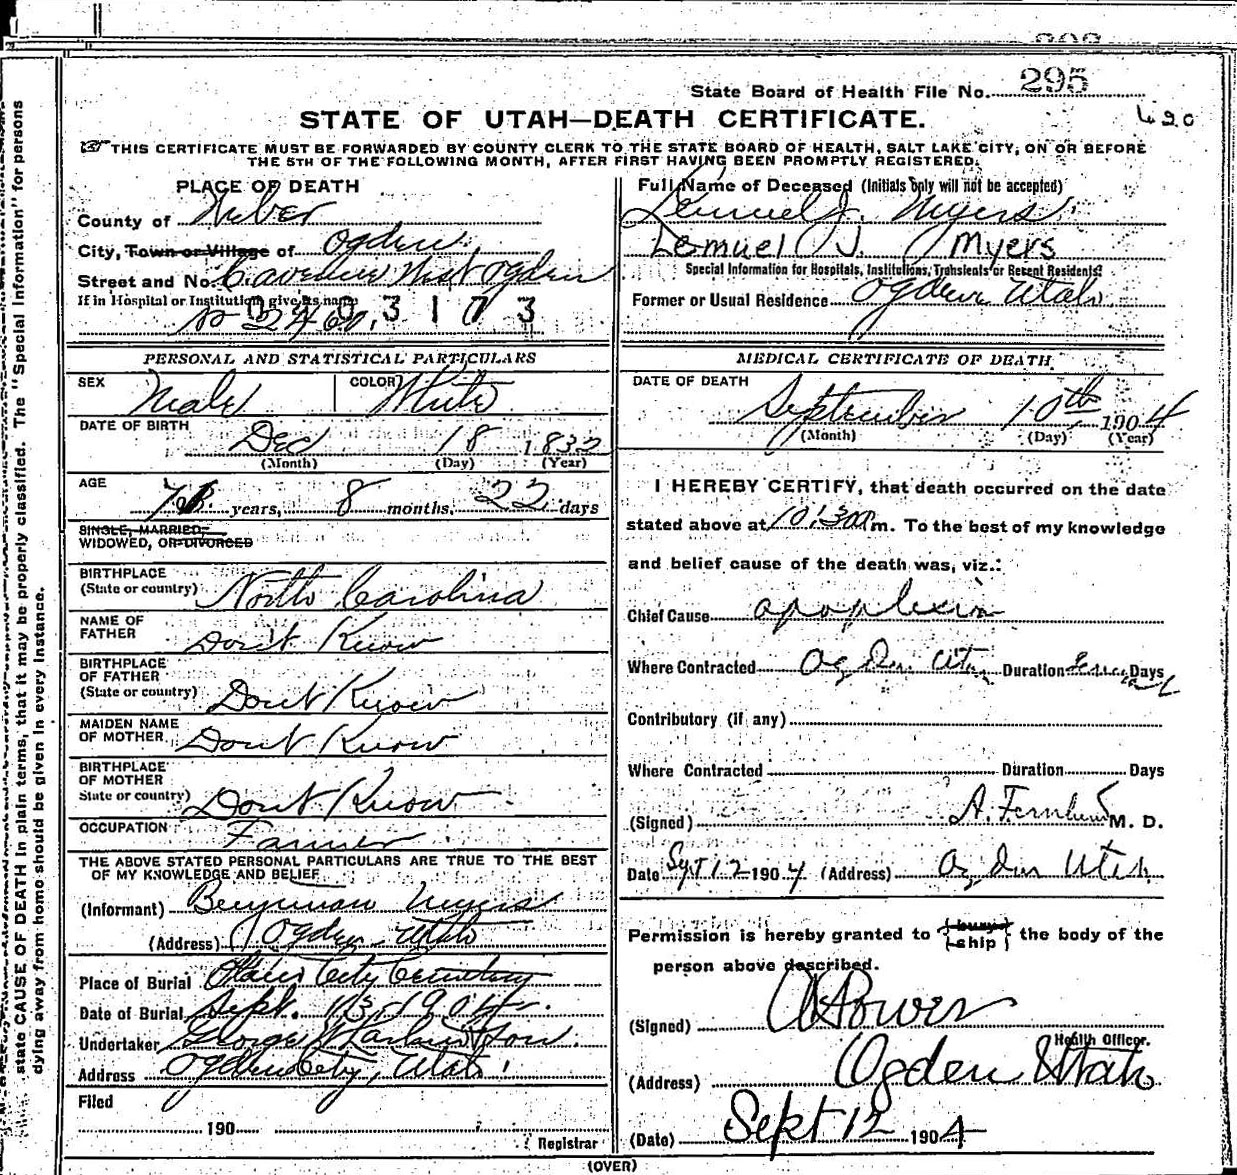 State Board of Health File No. 295
420
STATE OF UTAH—DEATH CERTIFICATE.
THIS CERTIFICATE MUST BE FORWARDED BY COUNTY CLERK TO THE STATE BOARD OF HEALTH, SALT LAKE CITY, ON OR BEFORE
THE 5TH OF THE FOLLOWING MONTH, AFTER FIRST HAVING BEEN PROMPTLY REGISTERED.
PLACE OF DEATH
County of Weber
City, Town or Village of Ogden
Street and No. C avenue West Ogden
If in Hospital or Institution give its name
No 2460
3 1 7 3
PERSONAL AND STATISTICAL PARTICULARS
SEX Male COLOR White
DATE OF BIRTH Dec 18 1832
(Month) (Day) (Year)
AGE years, 8 months, 22 days
SINGLE, MARRIED,
WIDOWED, OR DIVORCED
BIRTHPLACE
(State or country) North Carolina
NAME OF
FATHER Don't Know
BIRTHPLACE
OF FATHER
(State or country) Dont Know
MAIDEN NAME
OF MOTHER Dont Know
BIRTHPLACE
OF MOTHER
State or country) Dont Know
OCCUPATION Farmer
THE ABOVE STATED PERSONAL PARTICULARS ARE TRUE TO THE BEST
OF MY KNOWLEDGE AND BELIEF
(Informant) Benjiman Myers
(Address) Ogden Utah
Place of Burial City Cemetery
Date of Burial Sept. 13, 1904
Undertaker George W Larkin & Son.
Address Ogden City, Utah
Filed
190
Registrar
Full Name of Deceased (Initials only will not be accepted)
Lemuel J. Myers
Lemuel J. Myers
Special Information for Hospitals, Institutions, Transients or Recent Residents:
Former or Usual Residence Ogden Utah
MEDICAL CERTIFICATE OF DEATH
DATE OF DEATH
September 10th 1904
(Month) (Day) (Year)
I HEREBY CERTIFY, that death occurred on the date
stated above at 10:30 a m. To the best of my knowledge
and belief cause of the death was, viz.:
Chief Cause apoplexia
Where Contracted Ogden City Duration Days
Contributory (if any)
Where Contracted Duration Days
(Signed) A. M. D.
Date Sept 12 1904 (Address) Ogden Utah
Permission is hereby granted to {bury ship} the body of the
person above described.
(Signed)
Health Officer.
(Address) Ogden Utah
(Date) Sept 12 1904
(OVER)
state CAUSE OF DEATH in plain terms, that it may be properly classified. The "Special Information" for persons
dying away from home should be given in every instance.